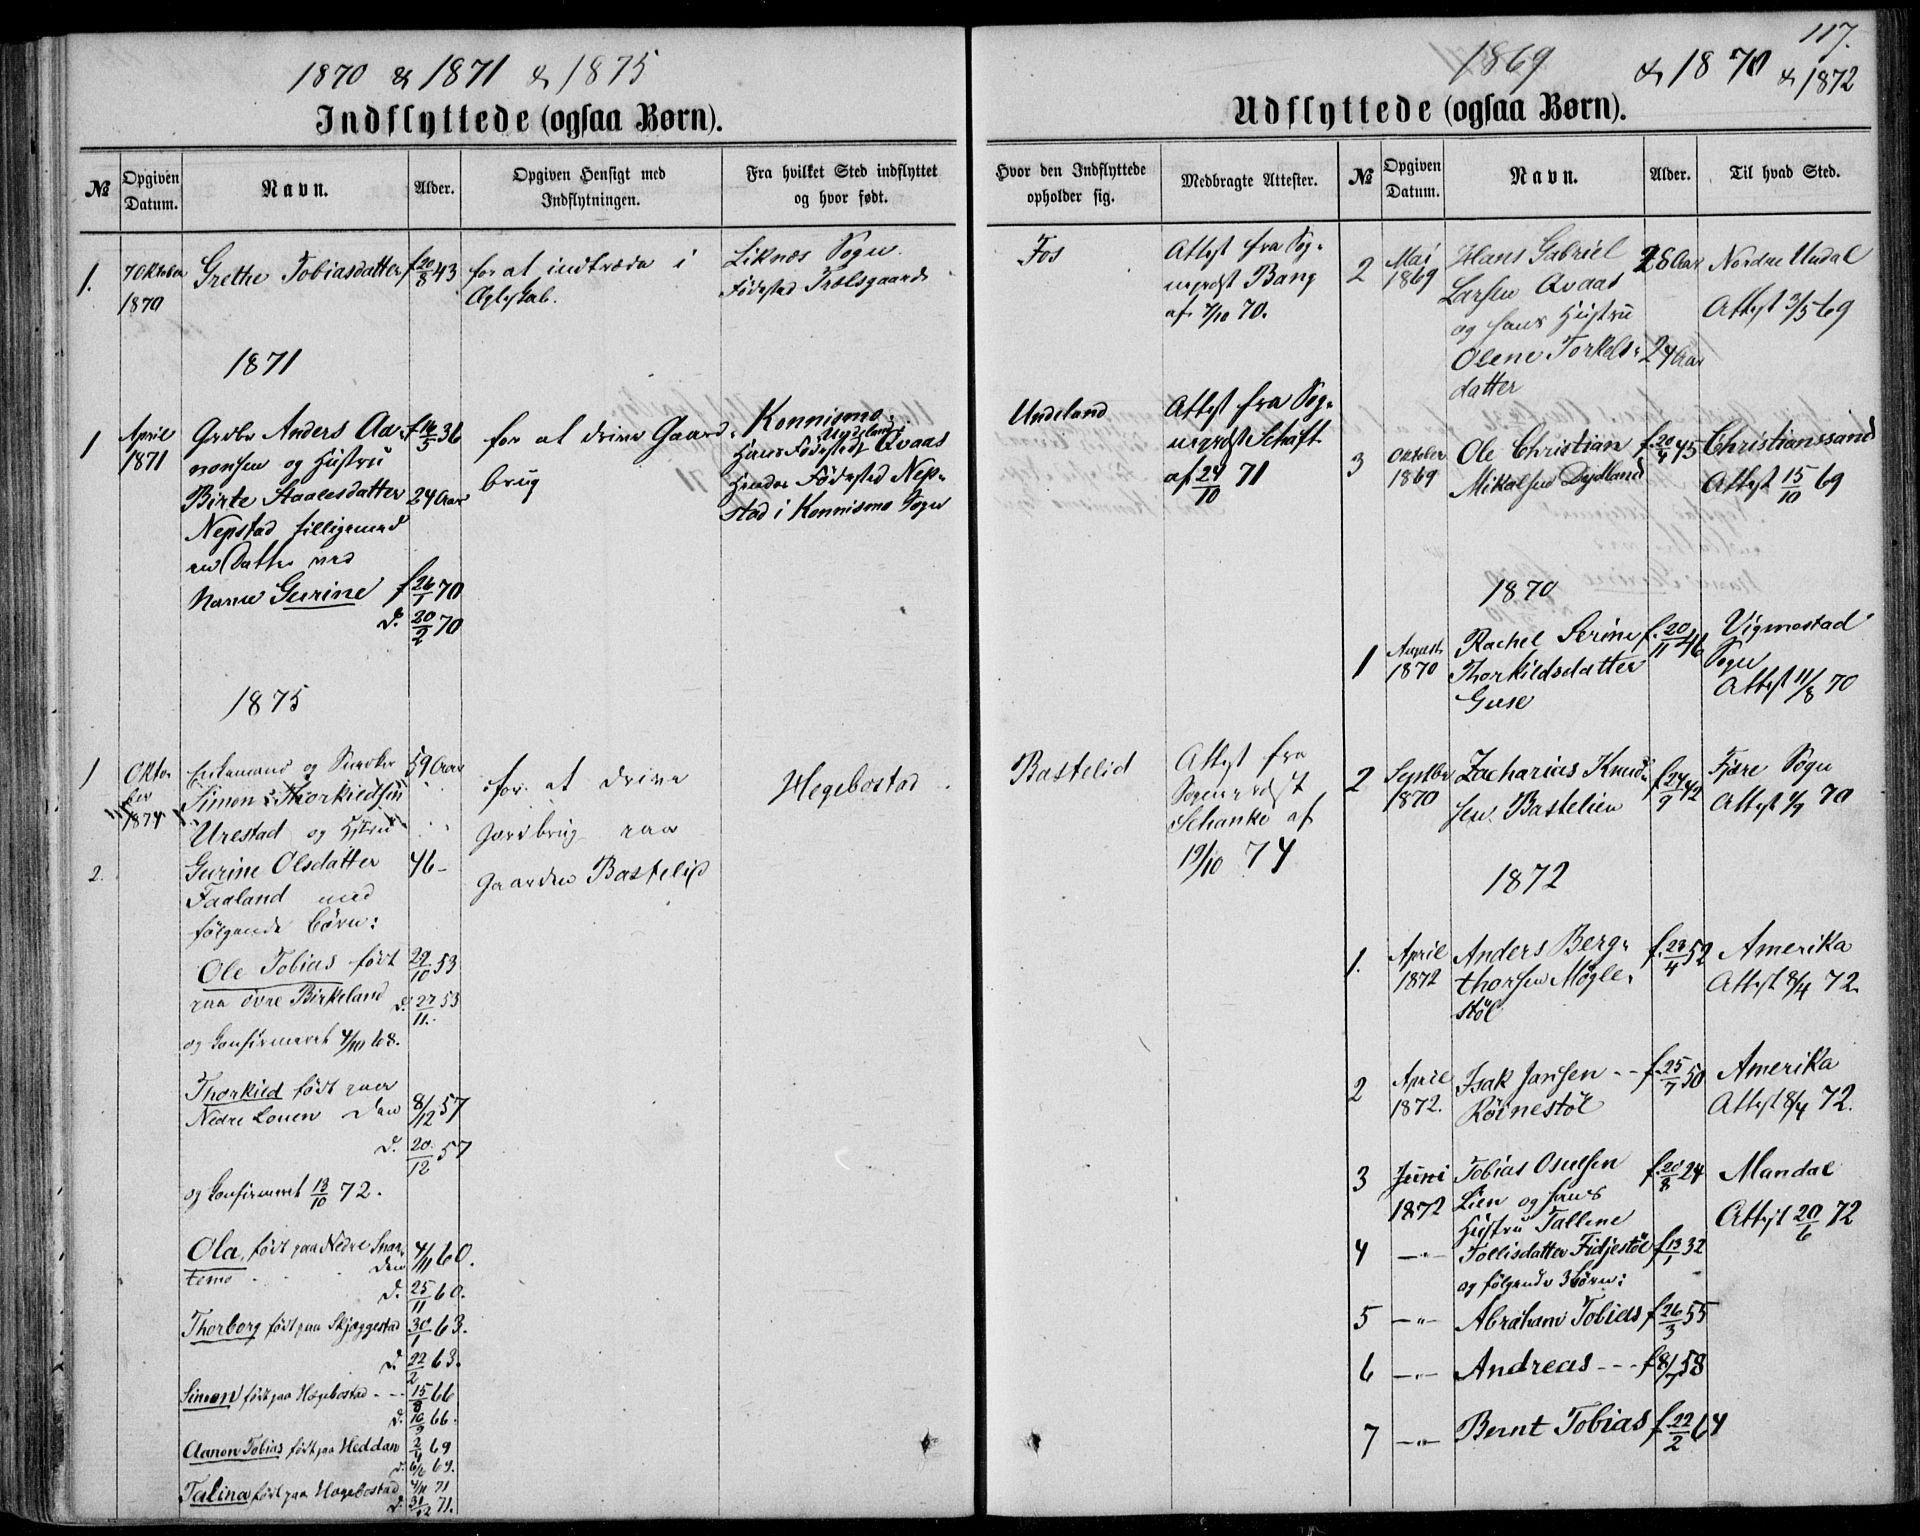 1870 & 1871 & 1875
Indflyttede (ogsaa Børn).
№
Opgiven Datum.
Navn.
Alder.
Opgiven Hensigt med Indflytningen.
Fra hvilket Sted indflyttet og hvor født.
1.
7 Oktober
1870
Grethe Tobiasdatter
f 20/8 43
for at indtræde i
Ægteskab.
Liknes Sogn.
Fødested Trælsgaard
1871
1
April
1871
Gårdbr Anders Aa-
nonsen og Hustru
Birte Staalesdatter
Nepstad tilligemed
en Datter ved
Navn Gurine
f 16/3 36
24 Aar
f 26/1 70
d. 20/2 70
for at drive Gaard-
brug
Konnismo.
Hans Fødested Qvaas
Hendes Fødested Nep-
stad i Konnismo Sogn
1875
1
Okto
ber
1874
Enkemand og
Simon Thorkildsen
Urestad og Hstru
59 Aar
2.
Gurine Olsdatter
Faaland med
følgende Børn:
46 -
for at drive
Jordbrug paa
Gaarden Bastelid
Hegebostad
Ole Tobias født
paa övre Birkeland
og Konfirmeret 4/10 68.
29/10 53
d. 27/11 53
Thorkild født paa
Nedre Lonen den
8/12 57
d. 20/12 57
og Konfirmeret 13/10 72.
Ola, født paa Nedre Snar-
temo den
4/11 60.
d. 25/11 60.
Thorborg født paa Skjeggestad
30/1 63.
d. 22/2 63.
Simon født paa Hægebostad - - -
15/8 66
d. 10/9 66.
Aanon Tobias født paa Heddan
2/4 69
d. 6/6 69.
Talina født paa Hægebostad
4/11 71
d. 31/12 71.
117.
1869 & 1870 & 1872
Udflyttede (ogsaa Børn).
Hvor den Indflyttede opholder sig.
Medbragte Attester.
№
Opgiven Datum.
Navn.
Alder.
Til hvad Sted.
Fos
Attest fra Sog-
nepræst Bang
af 7/10 70.
Undeland
Attest fra Sog-
nepræst Schäft
af 24/10 71
Bastelid
Attest fra
Sognepræst
Schanke af
19/10 74
2
Mai
1869
Hans Gabriel
Larsen Qvaas
og hans Hustru
Olene Torkels-
datter
28 Aar
24 Aar
Nordre Undal
Attest 3/5 69
3
Oktober
1869
Ole Christian
Mikalsen Dydland
f. 20/4 45
Christianssand
Attest 15/10 69
1870
1
August
1870
Rachel Serine
Thorkildsdatter
Guse
f. 20/11 46
Vigmostad
Sogn
Attest 11/8 70
2
Septbr
1870
Zacharias Knud-
sen Bastelien
f. 24/9 42
Fjære Sogn
Attest 1/9 70
1872
1.
April
1872
Anders Berg-
thorsen Mögle-
stöl
f. 23/4 52
Amerika
Attest 8/4 72.
2
April
1872.
Isak Jansen - -
Röinestöl
f. 25/7 50
Amerika
Attest 8/4 72.
3
Juni
1872
Tobias Osulsen
Lien og hans
Hustru Tallene
f. 20/8 24
Mandal
Attest 20/6 72
4
—"—
Tollisdatter Fidjestöl
og følgende 3 Börn:
f. 13/1 32
5
—"—
Abraham Tobias
f. 26/3 55
6
—"—
Andreas - - -
f. 8/7 58
7
—"—
Bernt Tobias
f. 22/2 64